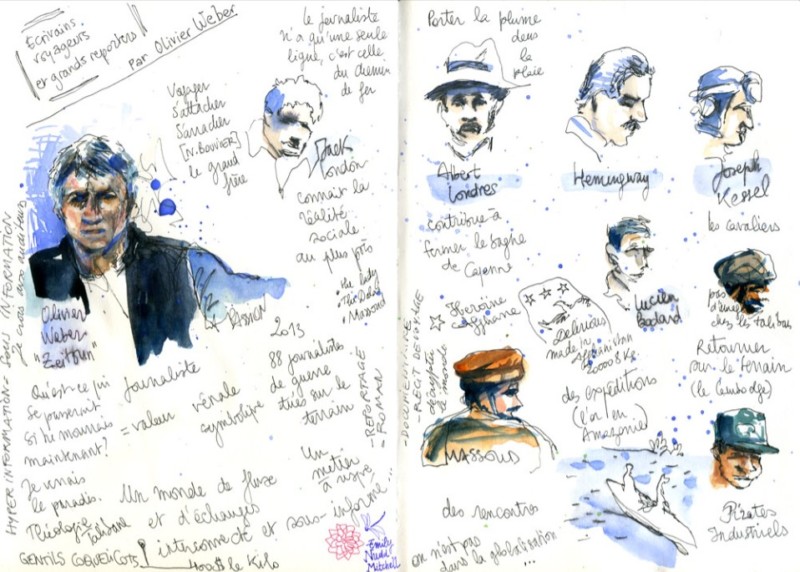 Écrivains
voyageurs
et grands reporters
par Olivier Weber
Le journaliste
n'a qu'une seule
ligne, c'est celle
du chemin
de fer
Voyager
S'attacher
S'arracher
[N. BOUVIER]
le grand
frère
Jack
London
connaît la
réalité
sociale
au plus près
Massoud
HYPER INFORMATION = SOUS INFORMATION
Olivier
Weber
"Zeitfun"
Qu'est-ce qui
se passerait
si je mourais
maintenant?
Je verrais
le paradis.
Théologie
talibane
GENTILS COQUELICOTS
le Kilo
Journaliste
= valeur
vénale
symbolique
2013
88 journalistes
de guerre
tués sur le
terrain
- REPORTAGE
- ROMAN
Un
métier
à risque
Un monde de fluxe
et d'échanges
interconnecté et sous-informé...
Emily
Nudd
Mitchell
Porter la plume
dans
la
plaie
Albert
Londres
Hemingway
Joseph
Kessel
contribue à
fermer le bagne
de Cayenne
les cavaliers
Lucien
Bodard
pas
chez les talibans
- DOCUMENTAIRE
- RÉCIT DE VOYAGE
décrypter
le monde
Héroïne
afghane
Delicious
made in
Afghanistan
MASSOUD
des expéditions
(l'or en
Amazonie)
Retourner
sur le terrain
(le Cambodge)
des rencontres
on n'est pas
dans la globalisation...
Pirates
Industriels